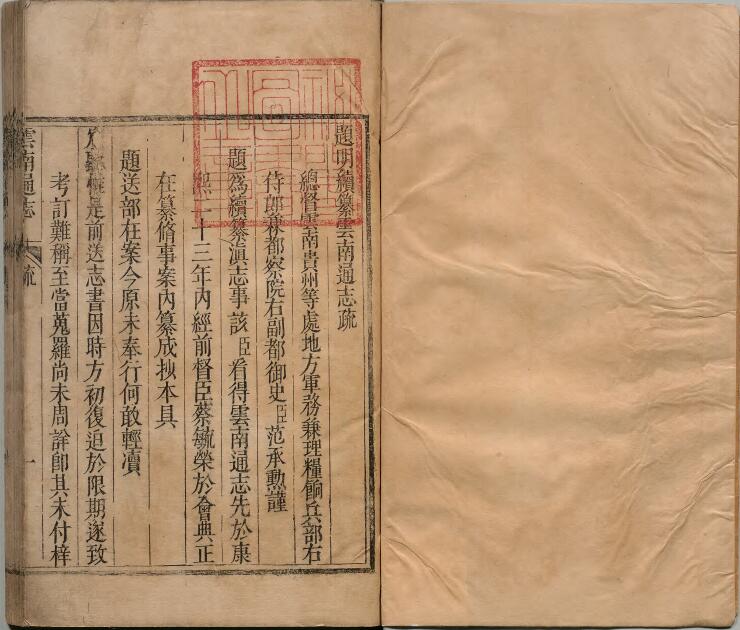 題明續纂雲南通志疏
總督雲南貴州等處地方軍務兼理糧餉兵部右
侍郎兼都察院右副都御史臣范承勳謹
題爲續纂滇志事該臣看得雲南通志先於康
熙二十三年內經前督臣蔡毓榮於會典正
在纂脩事案內纂成抄本具
題送部在案今原未奉行何敢輕瀆
是前送志書因時方初復迫於限期遂致
考訂難稱至當蒐羅尚未周詳卽其未付梓
雲南通志
疏
一